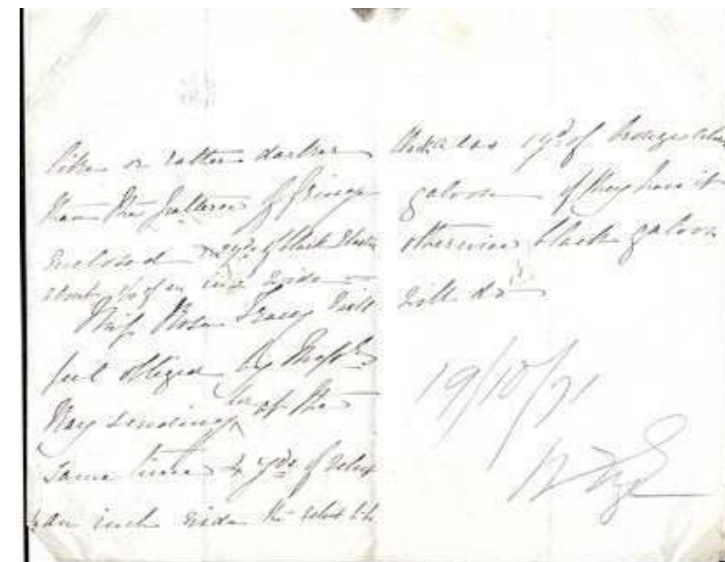 like or rather darker
than the pattern of fringe
enclosed 2 yds of black elastic
about 3/4 of an inch wide
Miss Rosa Tracey will
feel obliged by Messrs
sending her at the
same time 4 yds of velvet
an inch wide the velvet to be
19 yds of bronze
galoon if they have it
otherwise black galoon
will do
19/10/71